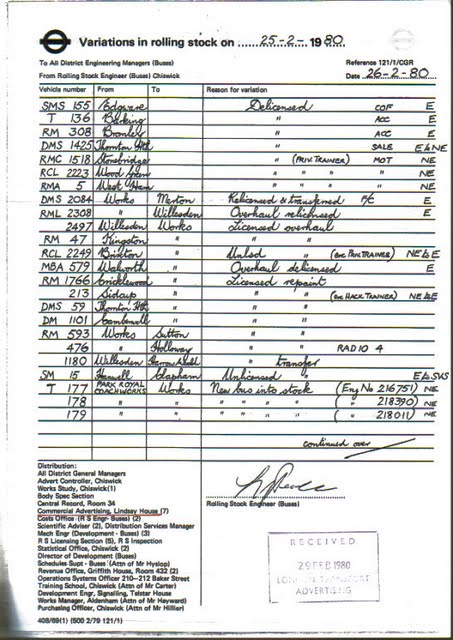 Variations in rolling stock on 25-2- 1980
To All District Engineering Managers (Buses) Reference 121/1/CGR
From Rolling Stock Engineer (Buses) Chiswick Date 26-2-80
Vehicle number From To Reason for variation
SMS 155 Edgware Delicensed COF E
T 136 Barking " ACC E
RM 308 Bromley " ACC E
DMS 1425 Thornton Hth " SALE E & NE
RMC 1518 Stonebridge " (PRIV TRAINER) MOT NE
RCL 2223 Wood Green " " " " NE
RMA 5 West Ham " " " " NE
DMS 2084 Works Merton Relicensed & transferred E
RML 2308 " Willesden Overhaul relicensed E
2497 Willesden Works Licensed overhaul
RM 47 Kingston " " "
RCL 2249 Brixton " Unlsd " (exc PRIV. TRAINER) NE & E
MBA 579 Walworth " Overhaul delicensed E
RM 1766 Cricklewood " Licensed repaint
213 Sidcup " " " (exc HACK TRAINER) NE & E
DMS 59 Thornton Hth " " "
DM 1101 Camberwell " " "
RM 593 Works Sutton " "
476 " Holloway " " RADIO 4
1180 Willesden Harrow Weald " transfer
SM 15 Hanwell Clapham Unlicensed E & SUS
T 177 PARK ROYAL COACHWORKS Works New bus into stock (Eng No 216751) NE
178 " " " " " " ( " 218390) NE
179 " " " " " " ( " 218011) NE
continued over
Distribution:
All District General Managers
Advert Controller, Chiswick
Works Study, Chiswick(1)
Body Spec Section
Central Record, Room 34
Commercial Advertising, Lindsay House (7)
Costs Office (R S Engr- Buses) (2)
Scientific Adviser (2), Distribution Services Manager
Mech Engr (Development - Buses) (3)
R S Licensing Section (5), R S Inspection
Statistical Office, Chiswick (2)
Director of Development (Buses)
Schedules Supt - Buses (Attn of Hyslop)
Revenue Office, Griffith House, Room 432 (2)
Operations Systems Officer 210-212 Baker Street
Training School, Chiswick (Attn of Mr Carter)
Development Engr, Signalling, Telstar House
Works Manager, Aldenham (Attn of Mr Hayward)
Purchasing Officer, Chiswick (Attn of Mr Hillier)
Rolling Stock Engineer (Buses)
RECEIVED
29 FEB 1980
LONDON TRANSPORT
ADVERTISING
408/69(1) (500 2/79 121/1)